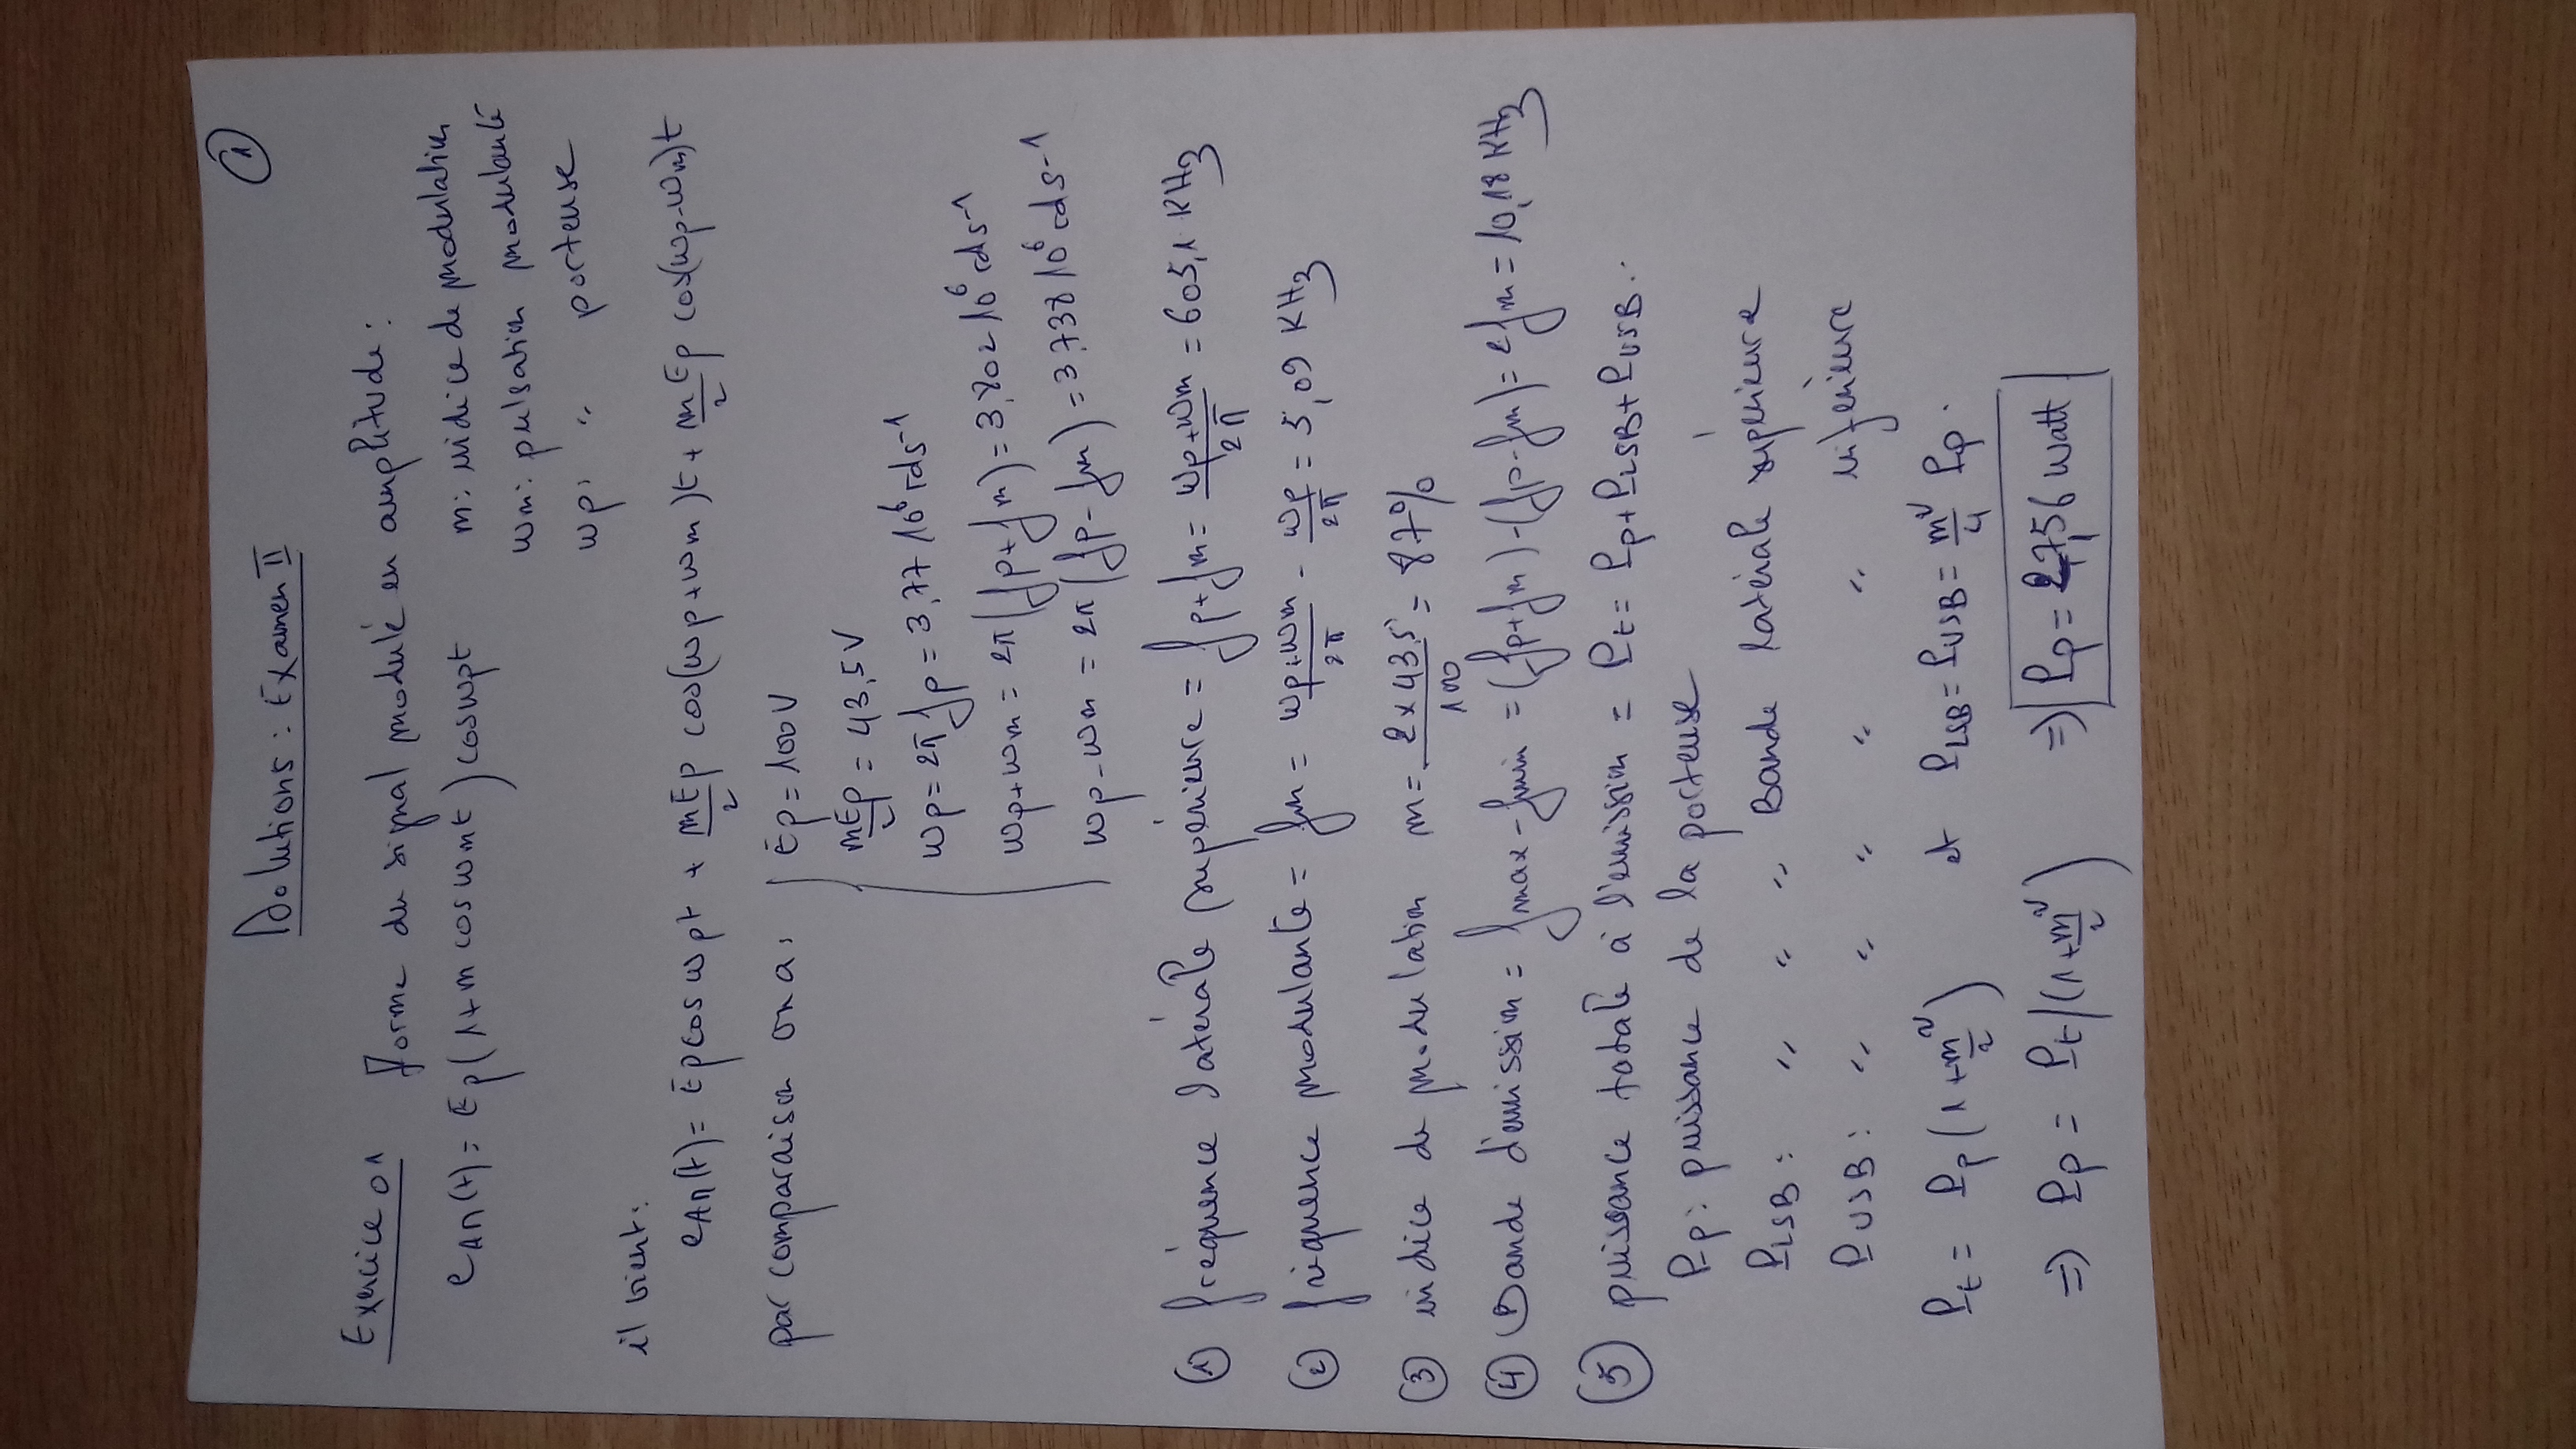 1
Solutions : Examen II
Exercice 01 Forme du signal modulé en amplitude :
eAM(t) = Ep(1+m cos wmt) coswpt m: indice de modulation
wm: pulsation modulante
wp: " porteuse
il vient:
eAM(t) = Ep cos wpt + mEp/2 cos(wp+wm)t + mEp/2 cos(wp-wm)t
par comparaison on a: Ep = 100V
mEp/2 = 43,5V
wp = 2π fp = 3,77 10⁶ rds⁻¹
wp+wm = 2π(fp+fm) = 3,802 10⁶ rds⁻¹
wp-wm = 2π(fp-fm) = 3,738 10⁶ rds⁻¹
① fréquence latérale supérieure = fp+fm = wp+wm/2π = 605,1 KHz
② fréquence modulante = fm = wp+wm/2π - wp/2π = 5,09 KHz
③ indice de modulation m = 2x43,5/100 = 87%
④ Bande d'émission = fmax-fmin = (fp+fm)-(fp-fm) = 2fm = 10,18 KHz
⑤ puissance totale à l'émission = Pt = Pp+PLSB+PUSB.
Pp: puissance de la porteuse
PLSB: " " " Bande latérale supérieure
PUSB: " " " " " inférieure
Pt = Pp(1+m²/2) et PLSB = PUSB = m²/4 Pp.
=> Pp = Pt/(1+m²/2) => Pp = 27,56 watt